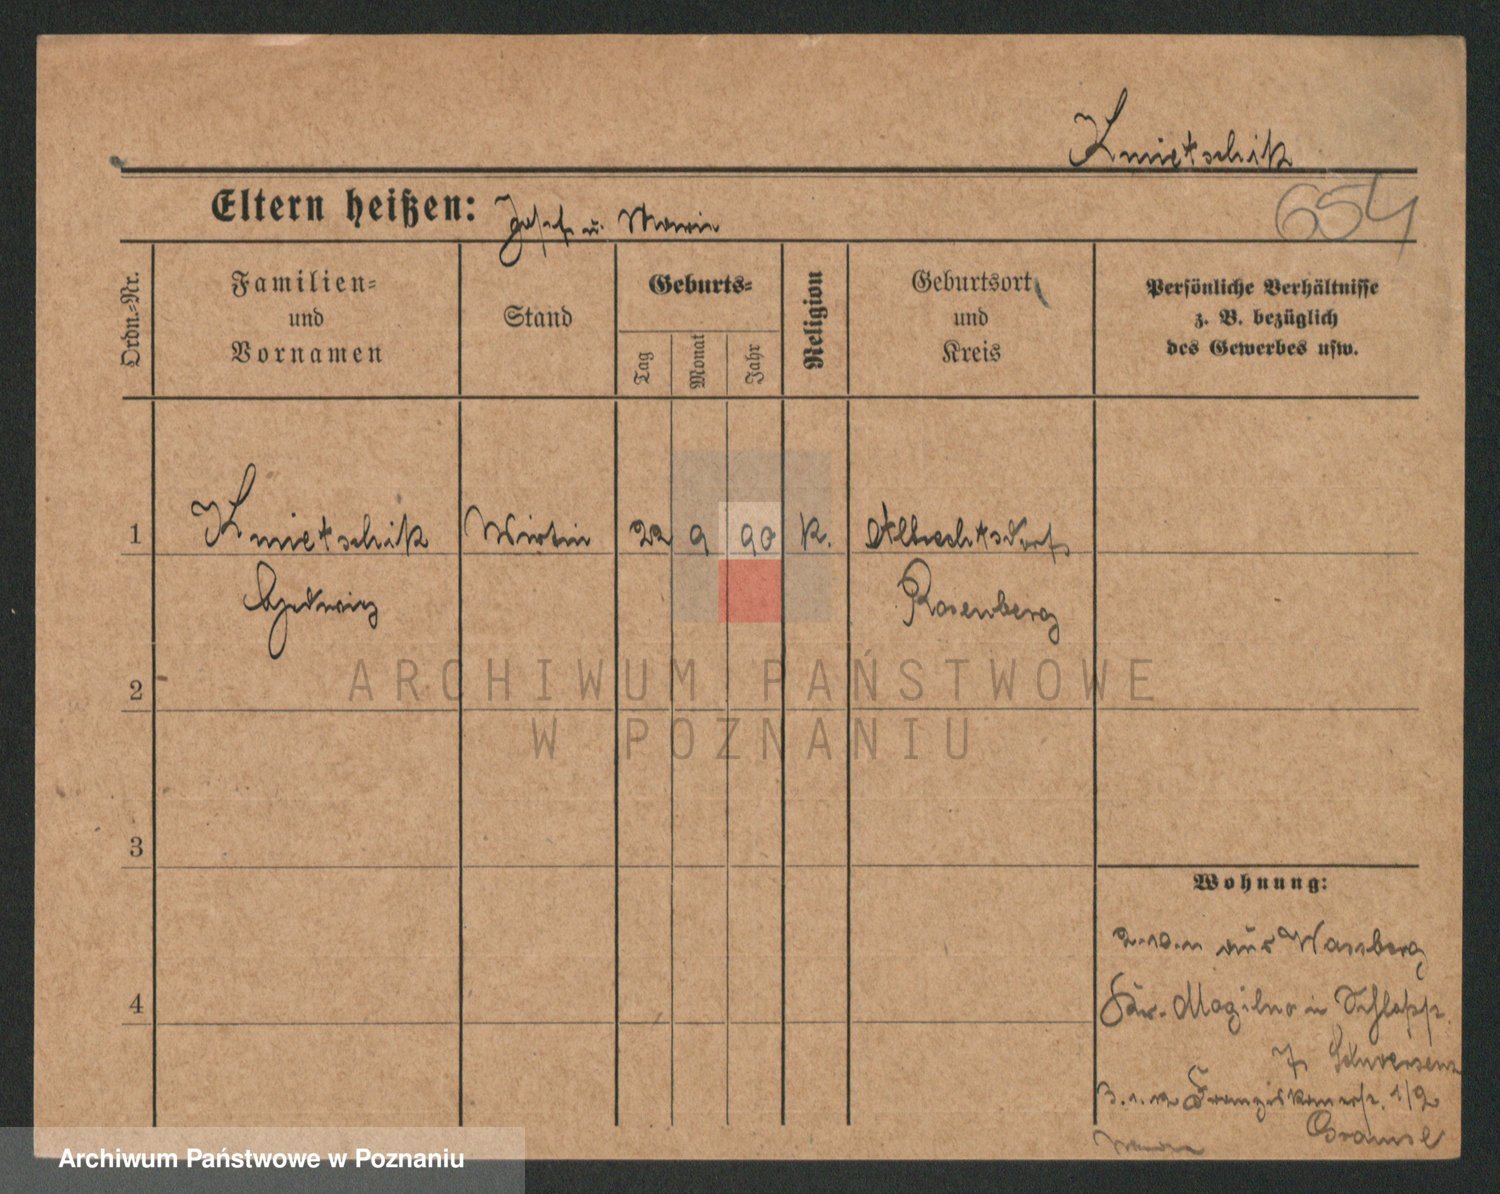 Kmietschik
654
Eltern heißen: Josef u. Marie
Ordn.-Nr.
Familien-
und
Vornamen
Stand
Geburts-
Tag
Monat
Jahr
Religion
Geburtsort
und
Kreis
Persönliche Verhältnisse
z. B. bezüglich
des Gewerbes usw.
1 Kmietschik Wirtin 22 9 90 K. Albrechtsdorf
Hedwig Rosenberg
2
3
4
Wohnung:
2.10.11 aus Wassberg
Mogilno in
7 Schwersenz
3.1.12 Franziskanerstr. 1/2
ARCHIWUM PAŃSTWOWE
W POZNANIU
Archiwum Państwowe w Poznaniu